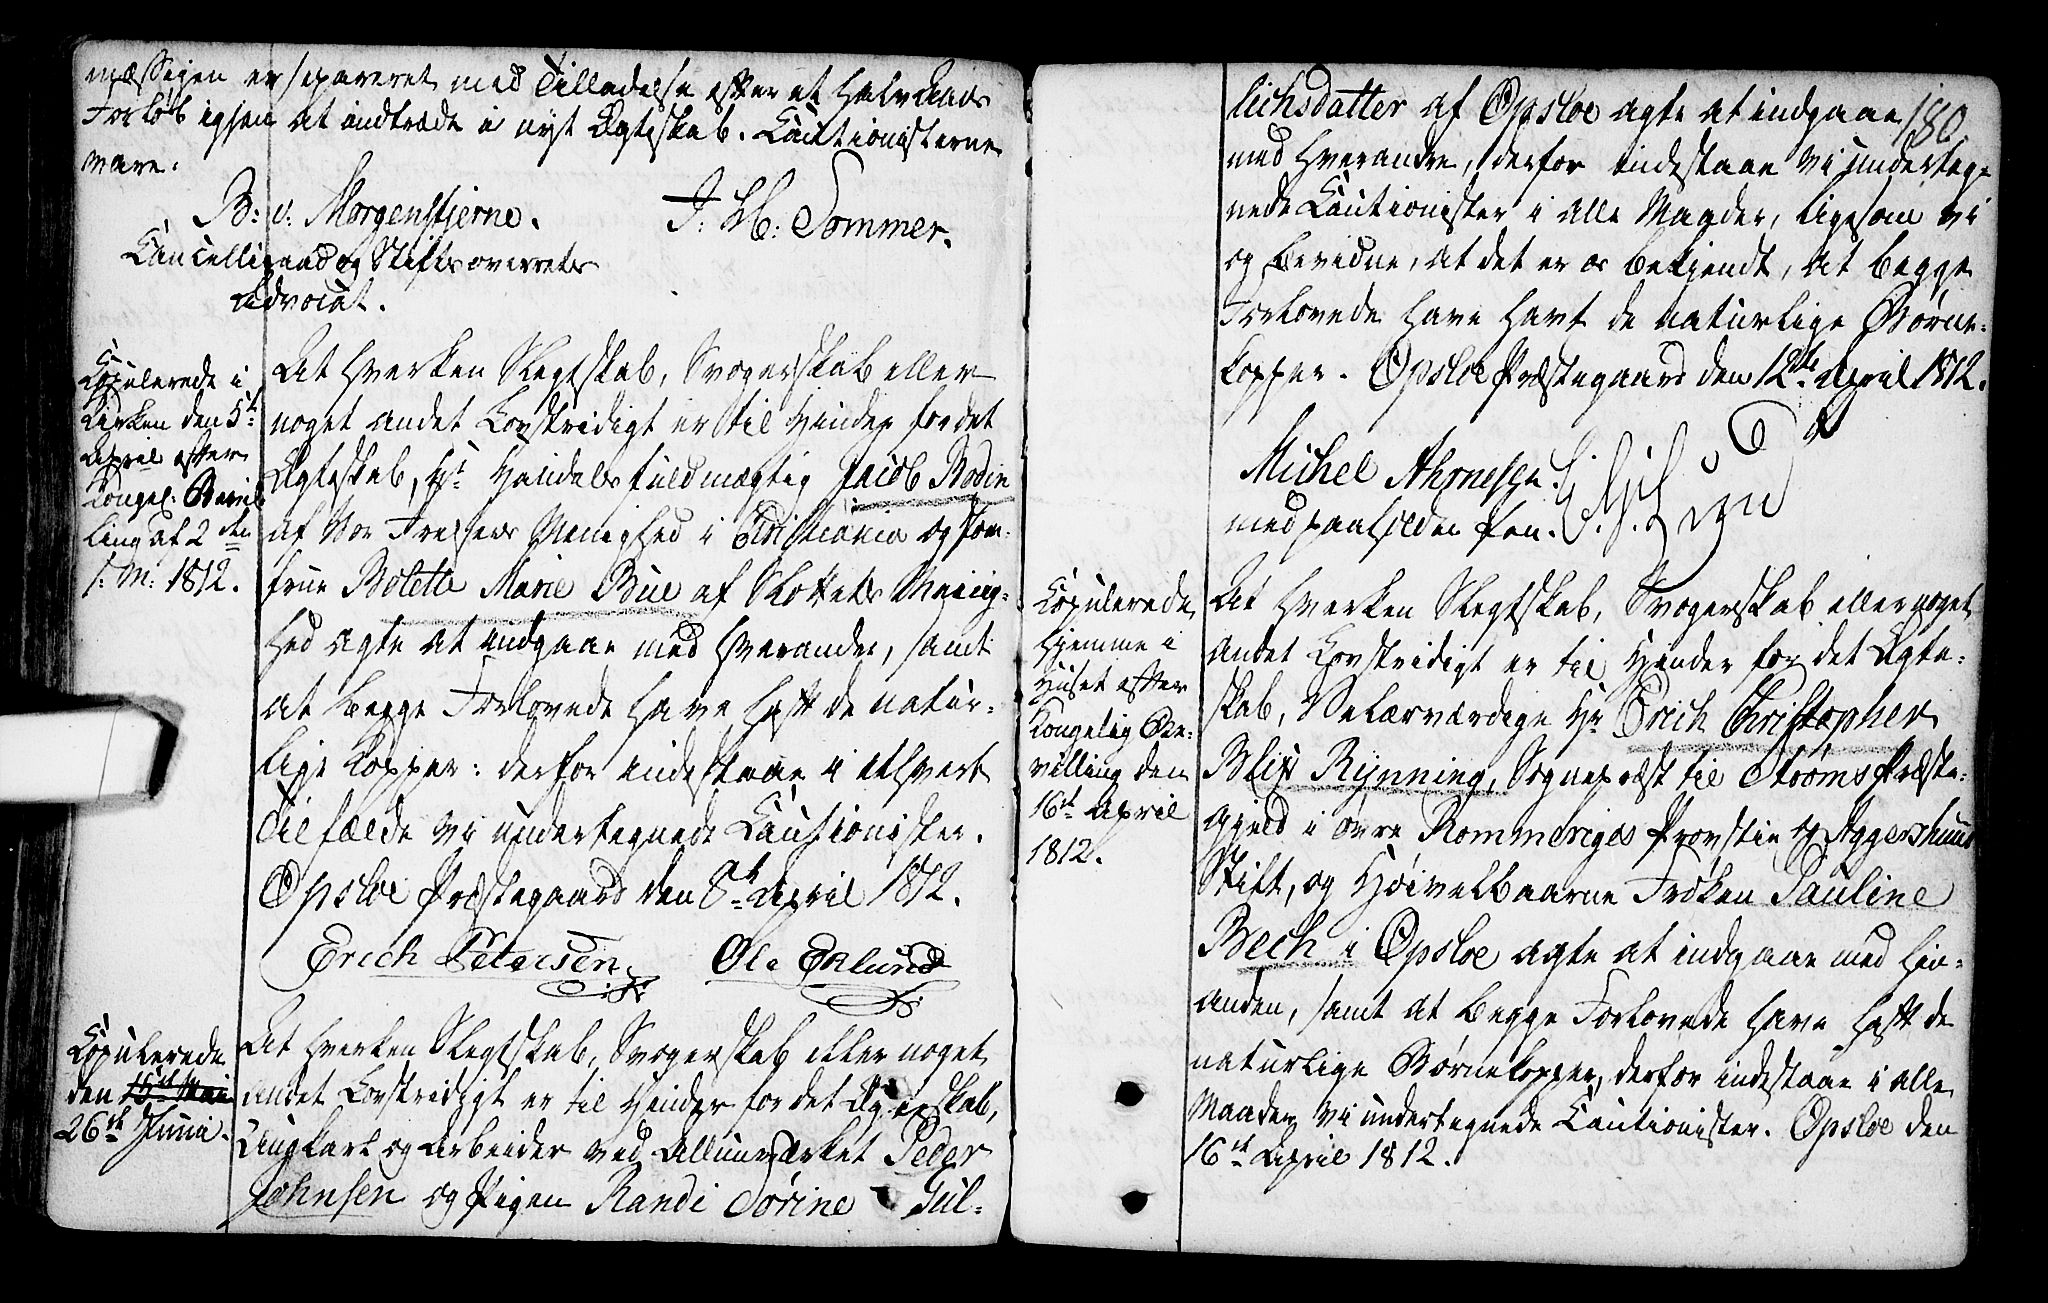 mæssigen er separeret med Tilladelse efter et halv Aars
Forløb igjen at indtræde i nyt Ægteskab. Cautionisterne
vare:
B: v: Morgenstjerne. J: H: Sommer.
Cancelliraad og Stifts overrets
Advocat.
Copulerede i
Kirken den 5te
April efter
Kongel: Bevil
ling af 2den
s: M: 1812.
At hverken Slegtskab, Svogerskab eller
noget andet Lovstridigt er til Hinder for det
Ægteskab, Hr Handelsfuldmægtig Jacob Bodin
af Vor Frelsers Menighed i Christiania og Jom-
frue Bolette Marie Bue af Slottets Menig-
hed agte at indgaae med hverandre, samt
at begge Forlovede have haft de natur-
lige Kopper: derfor indestaae i ethvert
Tilfælde vi undertegnede Cautionister.
Opsloe Præstegaard den 5te April 1812.
Erich Petersen Ole Eklund
Copulerede
den 15de Mai
26de Junii.
At hverken Slegtskab, Svogerskab eller noget
andet Lovstridigt er til Hinder for det Ægteskab,
Ungkarl og Arbeider ved Allunværket Peder
Johnsen og Pigen Randi Sørine Gul-
180.
lichsdatter af Opsloe agte at indgaae
med hverandre, derfor indestaae vi underteg-
nede Cautionister i alle Maader, ligesom vi
og bevidne, at det er os bekjendt, at begge
Forlovede have havt de naturlige Børne-
kopper. Opsloe Præstegaard den 12te April 1812.
Michel Ahrnesen
med paaholden Pen.
Copulerede
hjemme i
Huset efter
Kongelig Be-
villing den
16de April
1812.
At hverken Slegtskab, Svogerskab eller noget
andet Lovstridigt er til Hinder for det Ægte-
skab, Velærværdige Hr Erich Christopher
Blix Rynning, Sognepræst til Strøms Præste-
gjeld i øvre Rommeriges Provstie og Aggershuus
Stift, og Høivelbaarne Frøken Pauline
Bech i Opsloe agte at indgaae med hin-
anden, samt at begge Forlovede have haft de
naturlige Børnekopper, derfor indestaae i alle
Maader vi undertegnede Cautionister. Opsloe den
16de April 1812.